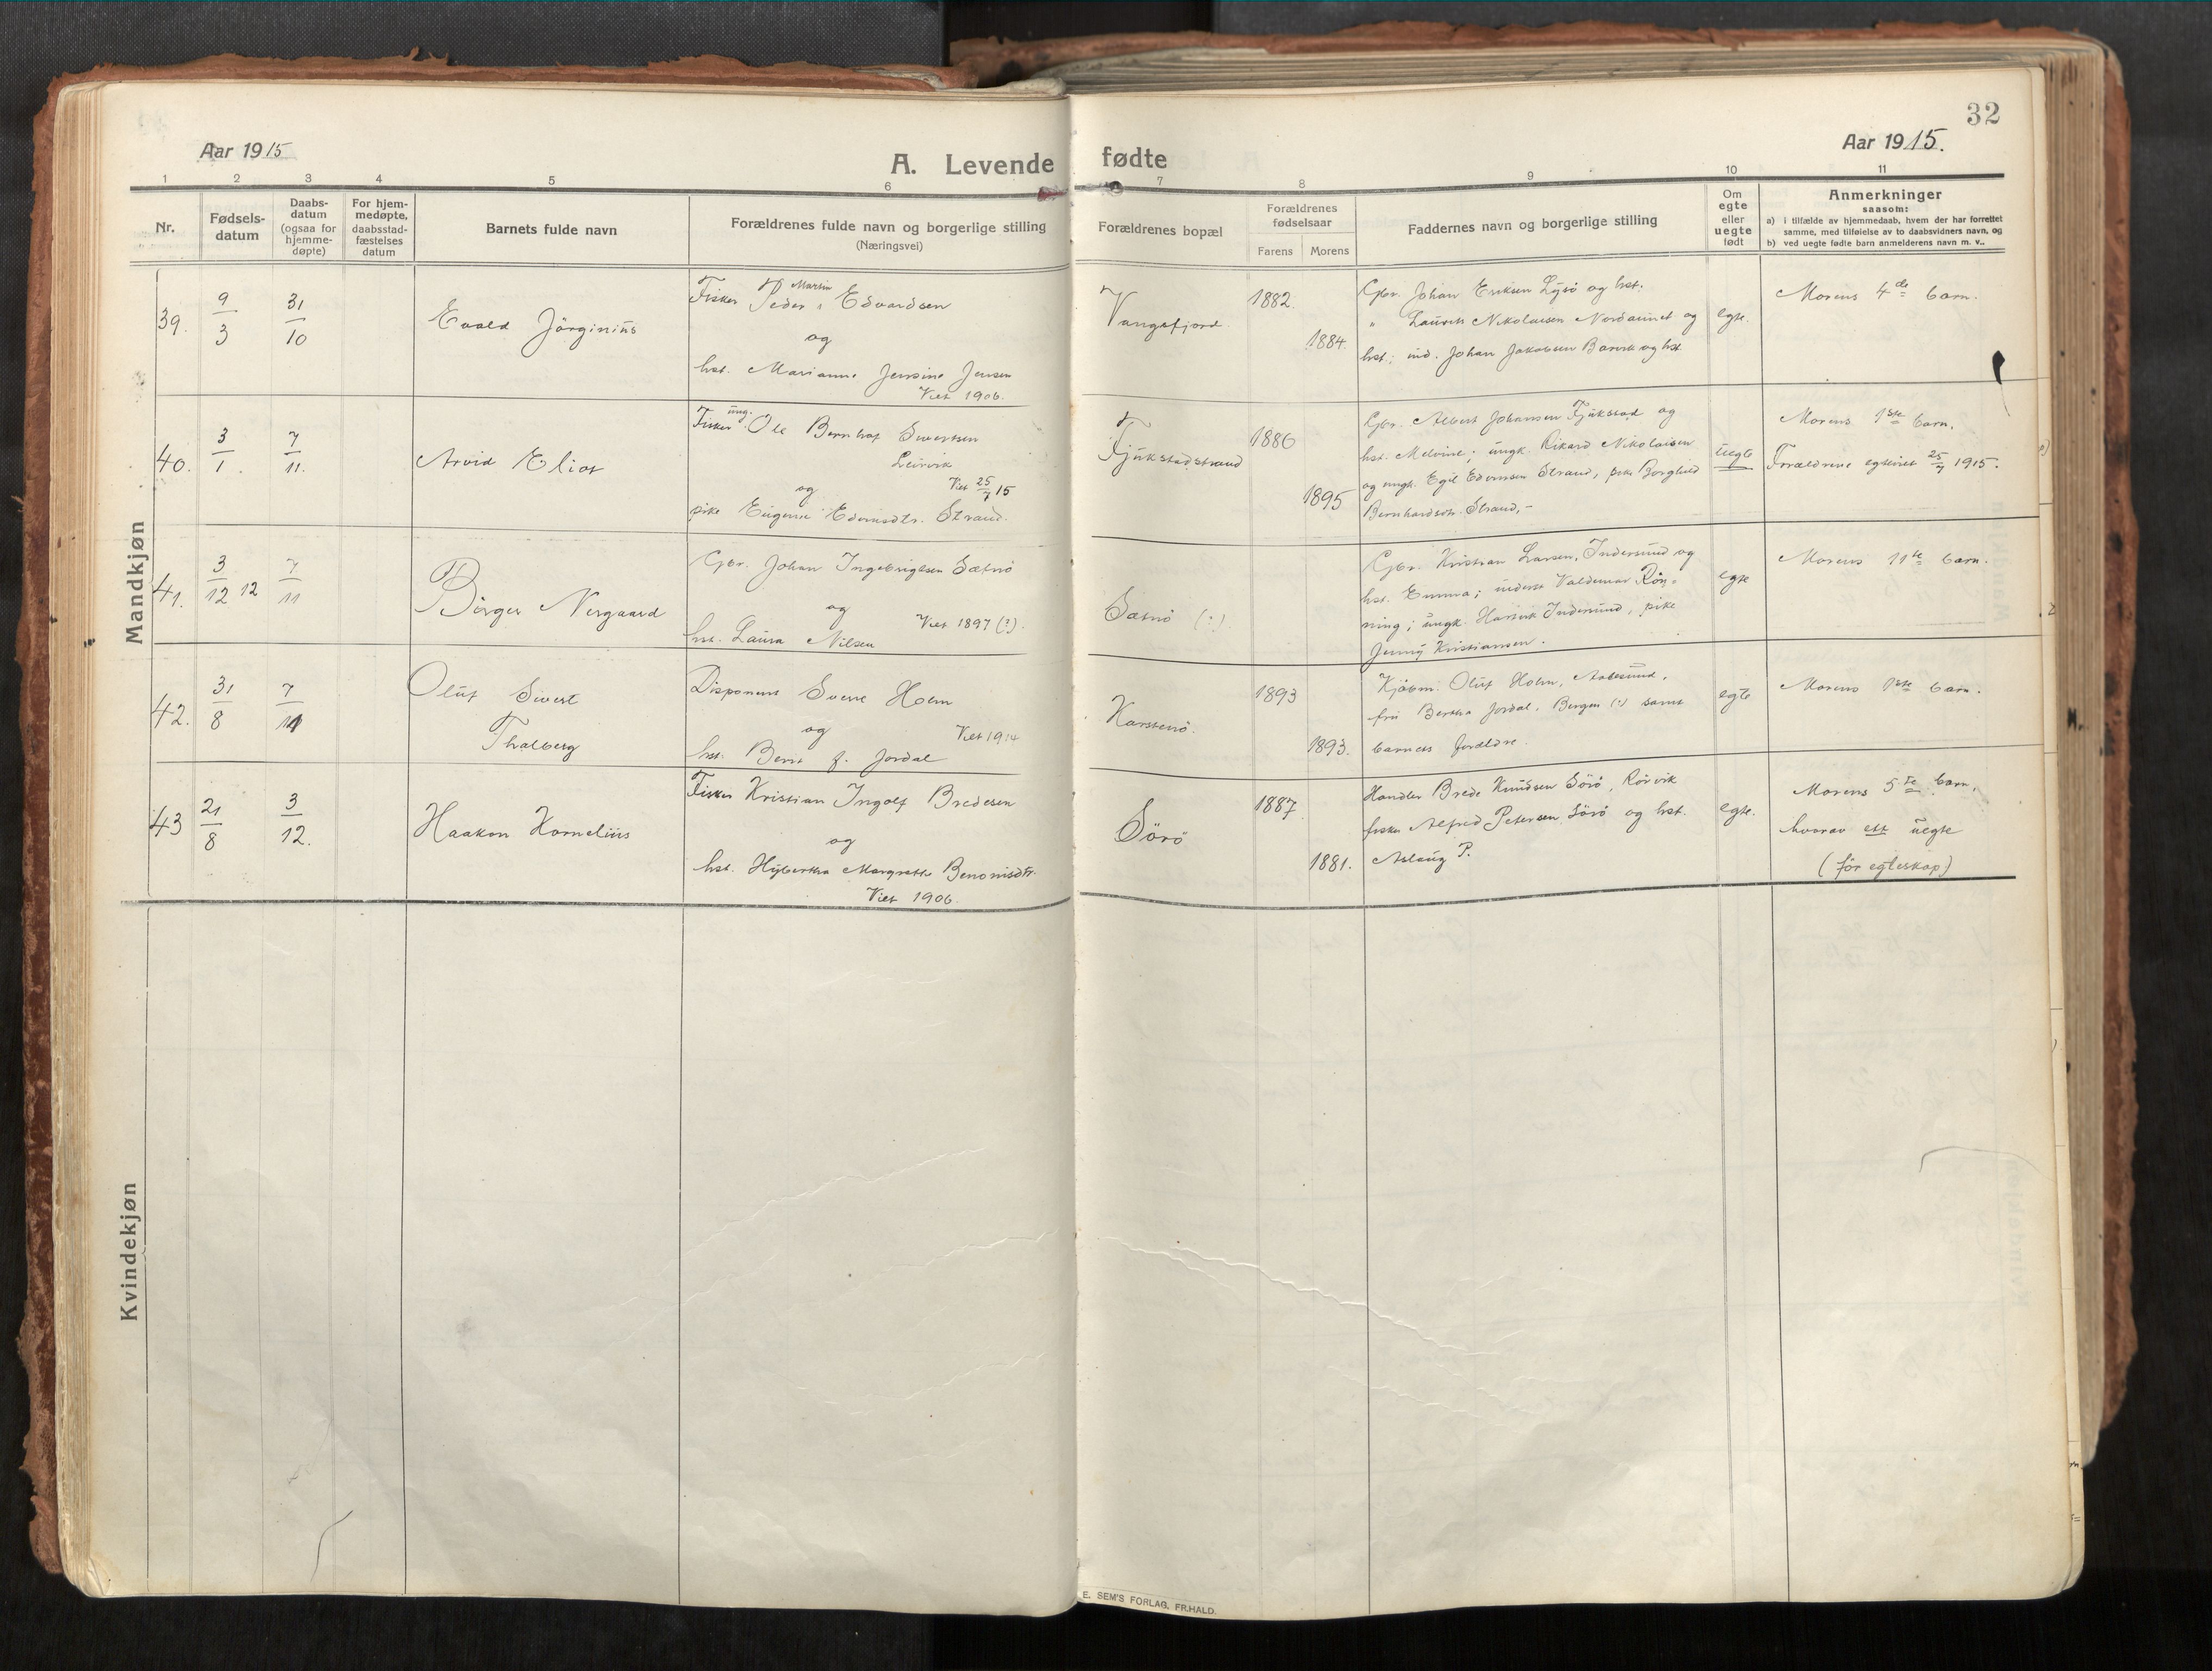 32
Aar 1915
A. Levende fødte
Aar 1915.
1 2 3 4 5 6 7 8 9 10 11
Nr.
Fødsels-
datum
Daabs-
datum
(ogsaa for
hjemme-
døpte)
For hjem-
medøpte,
daabsstad-
fæstelses
datum
Barnets fulde navn
Forældrenes fulde navn og borgerlige stilling
(Næringsvei)
Forældrenes bopæl
Forældrenes
fødselsaar
Farens Morens
Faddernes navn og borgerlige stilling
Om
egte
eller
uegte
født
Anmerkninger
saasom:
a) i tilfælde av hjemmedaab, hvem der har forrettet
samme, med tilføielse av to daabsvidners navn, og
b) ved uegte fødte barn anmelderens navn m. v..
Mandkjøn
39.
9/3
31/10
Evald Jörginius
Fisker Peder Martin Edvardsen
og
hst. Marianne Jensine Jensen
Viet 1906.
Vangsfjord.
1882.
1884.
Gbr. Johan Eriksen Lysö og hst.
" Laurits Nikolaisen Nordaunet og
hst; ind. Johan Jakobsen og hst.
egte.
Morens 4de barn.
40.
3/1.
7/11.
Arvid Eliot
Fisker ung. Ole Bernhof Sivertsen
Leirvik
og Viet 25/7 15
pike Eugenie Edvinsdtr. Strand.
Fjukstadstrand
1886
1895
Gbr. Albert Johansen Fjukstad og
hst. Melvine; ungk. Rikard Nikolaisen
og ungk. Egil Edvinsen Strand, pike Borghild
Bernhardsdtr. Strand,-
uegte
Morens 1ste barn.
Forældrene egteviet 25/7 1915.
41.
3/12 12
7/11
Birger Nergaard
Gbr. Johan Ingebrigtsen Sætnö
og
hst. Laura Nilsen Viet 1897 (?).
Sætnö (?).
Gbr. Kristian Larsen, Indersund og
hst. Emma; inderst Valdemar Rön-
ning; ungk. Hartvik Indersund, pike
Jenny Kristiansen.
egte
Morens 11te barn.
42.
31/8
7/11
Oluf Sivert
Thalberg
Disponent Sverre Holm
og Viet 1914
hst. Berit f. Jordal
Karstenö.
1893
1893.
Kjöbm. Oluf Holm, Aalesund,
fru Bertha Jordal, Bergen (?) samt
barnets forældre.
egte
Morens 1ste barn.
43
21/8
3/12.
Haakon Kornelius
Fisker Kristian Ingolf Bredesen
og
hst. Hybertha Margrethe Benonisdtr.
Viet 1906.
Sörö
1887
1881.
Handler Brede Knudsen Sörö, Rörvik
fisker Alfred Petersen Sörö og hst.
Aslaug P.
egte.
Morens 5te barn,
hvorav ett uegte
(för egteskap)
Kvindekjøn
E. SEM'S FORLAG, FR.HALD.